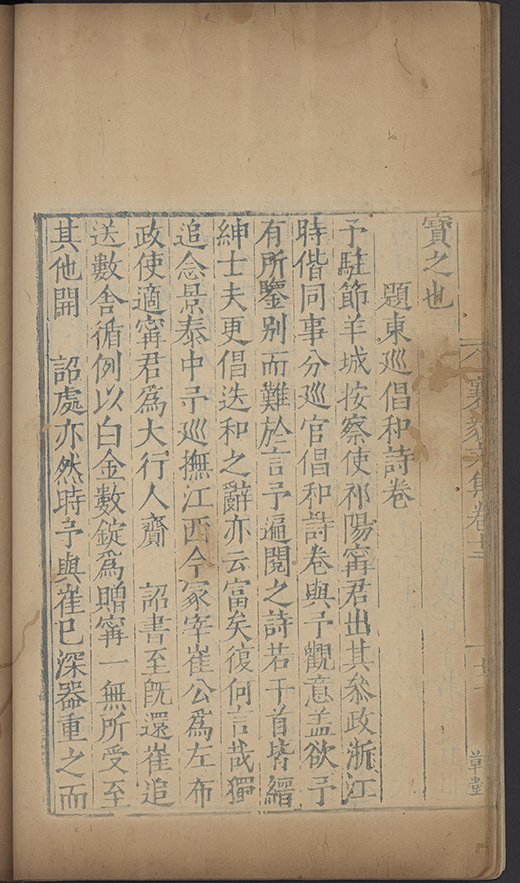 寶之也
題東巡倡和詩卷
予駐節羊城按察使祁陽甯君出其參政浙江
時偕同事分巡官倡和詩卷與予觀意盖欲予
有所鑒别而難於言予遍閱之詩若干首皆縉
紳士夫更倡迭和之辭亦云富矣復何言哉獨
追念景泰中予巡撫江西今冢宰崔公爲左布
政使適甯君爲大行人齎 詔書至旣還崔追
送數舍循例以白金數錠爲贈甯一無所受至
其他開 詔處亦然時予與崔已深器重之而
襄毅文集卷十
草堂